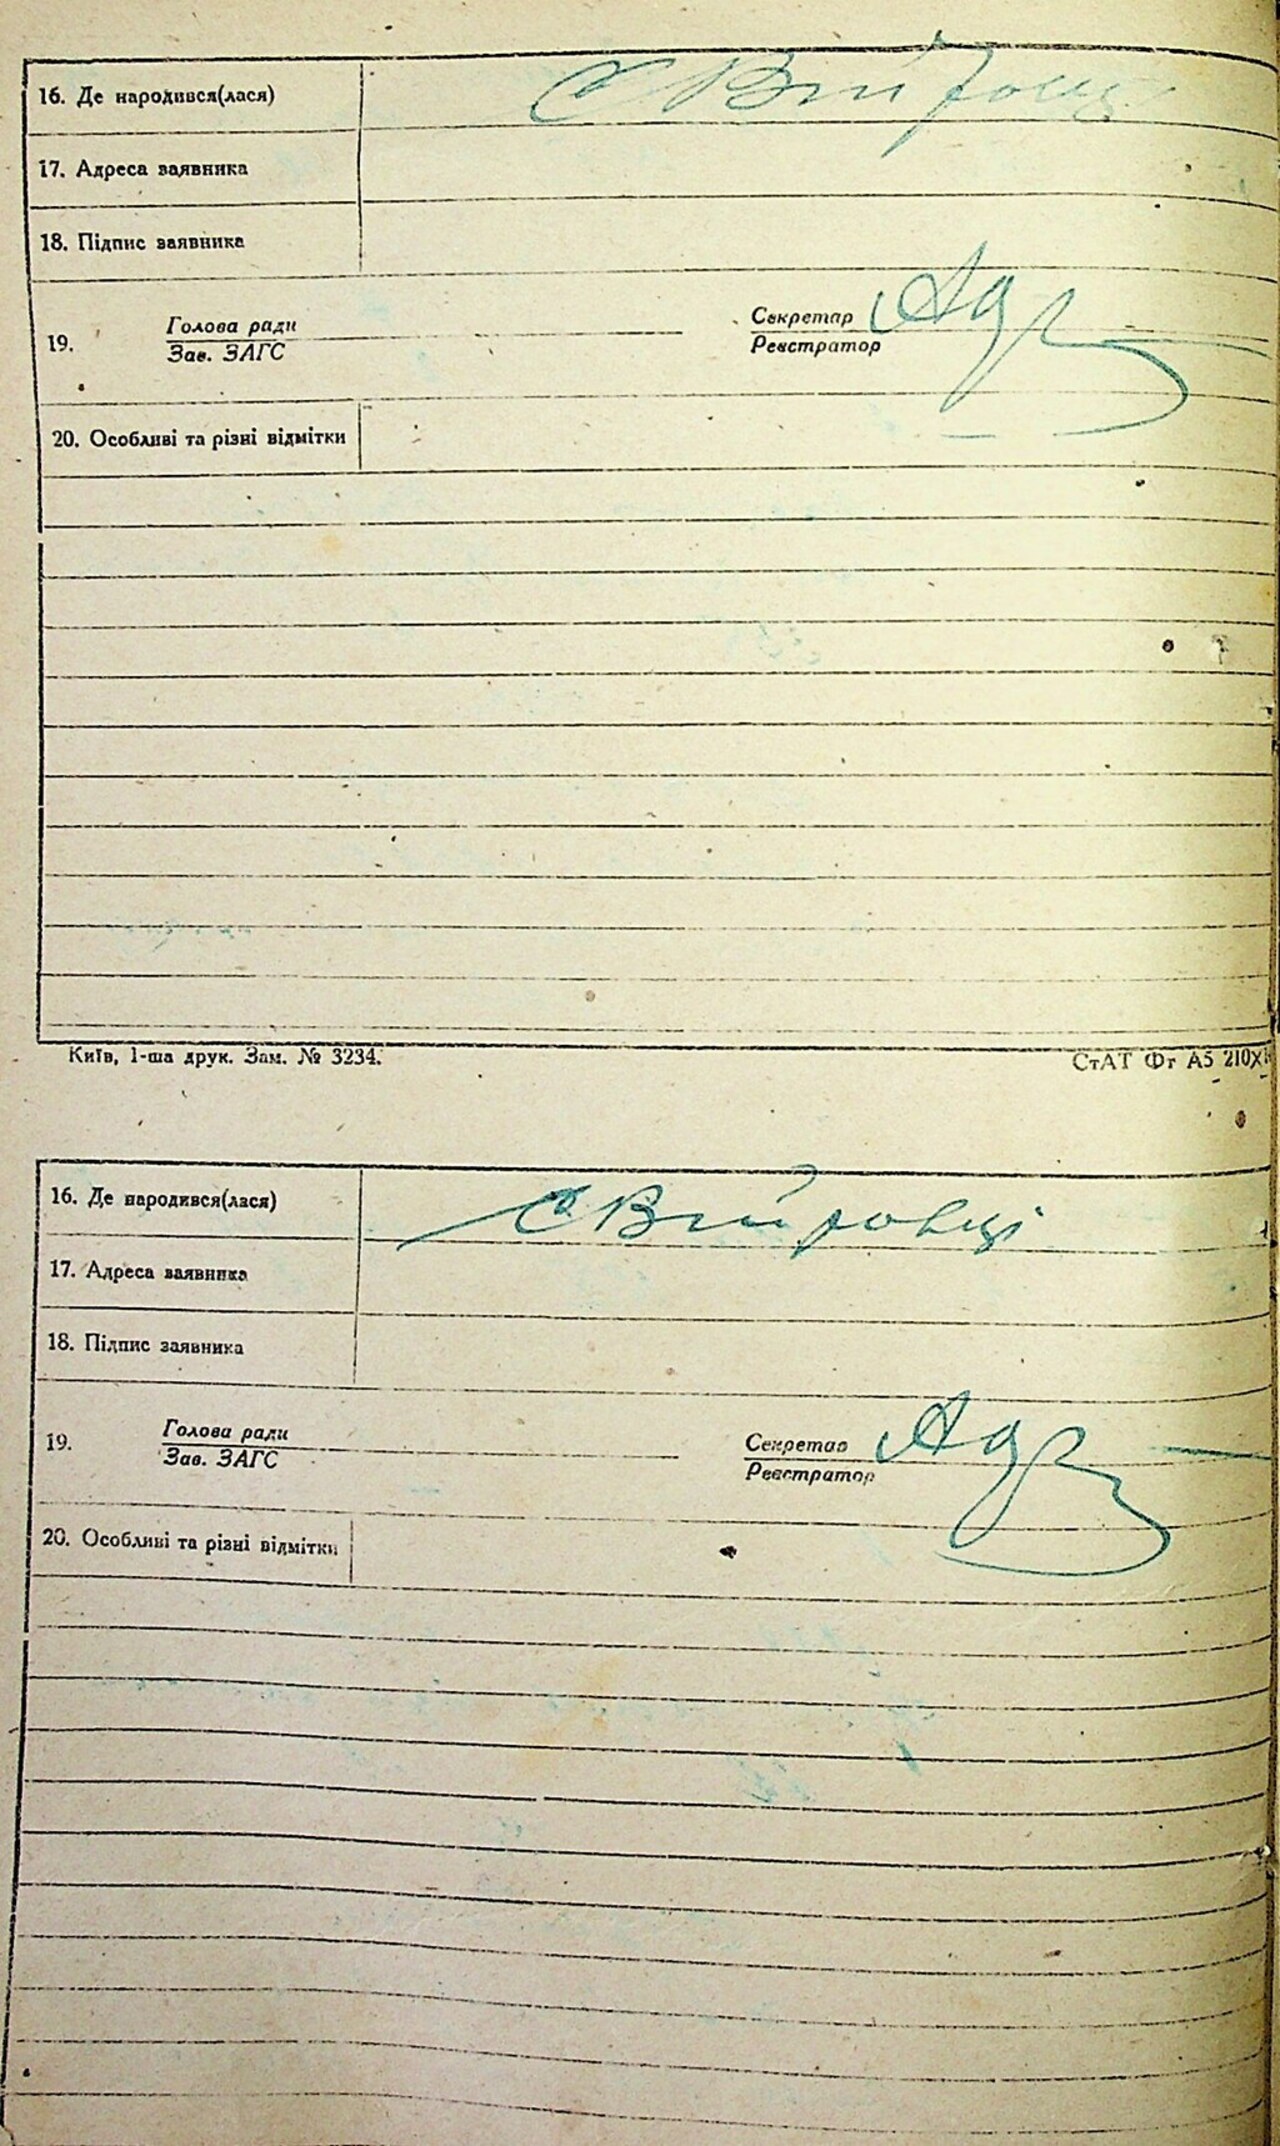 16. Де народився(лася) с Війтовці
17. Адреса заявника
18. Підпис заявника
19. Голова ради Секретар
Зав. ЗАГС Реєстратор
20. Особливі та різні відмітки
Київ, 1-ша друк. Зам. № 3234. СтАТ Фг А5 210х
16. Де народився(лася) с Війтовці
17. Адреса заявника
18. Підпис заявника
19. Голова ради Секретар
Зав. ЗАГС Реєстратор
20. Особливі та різні відмітки